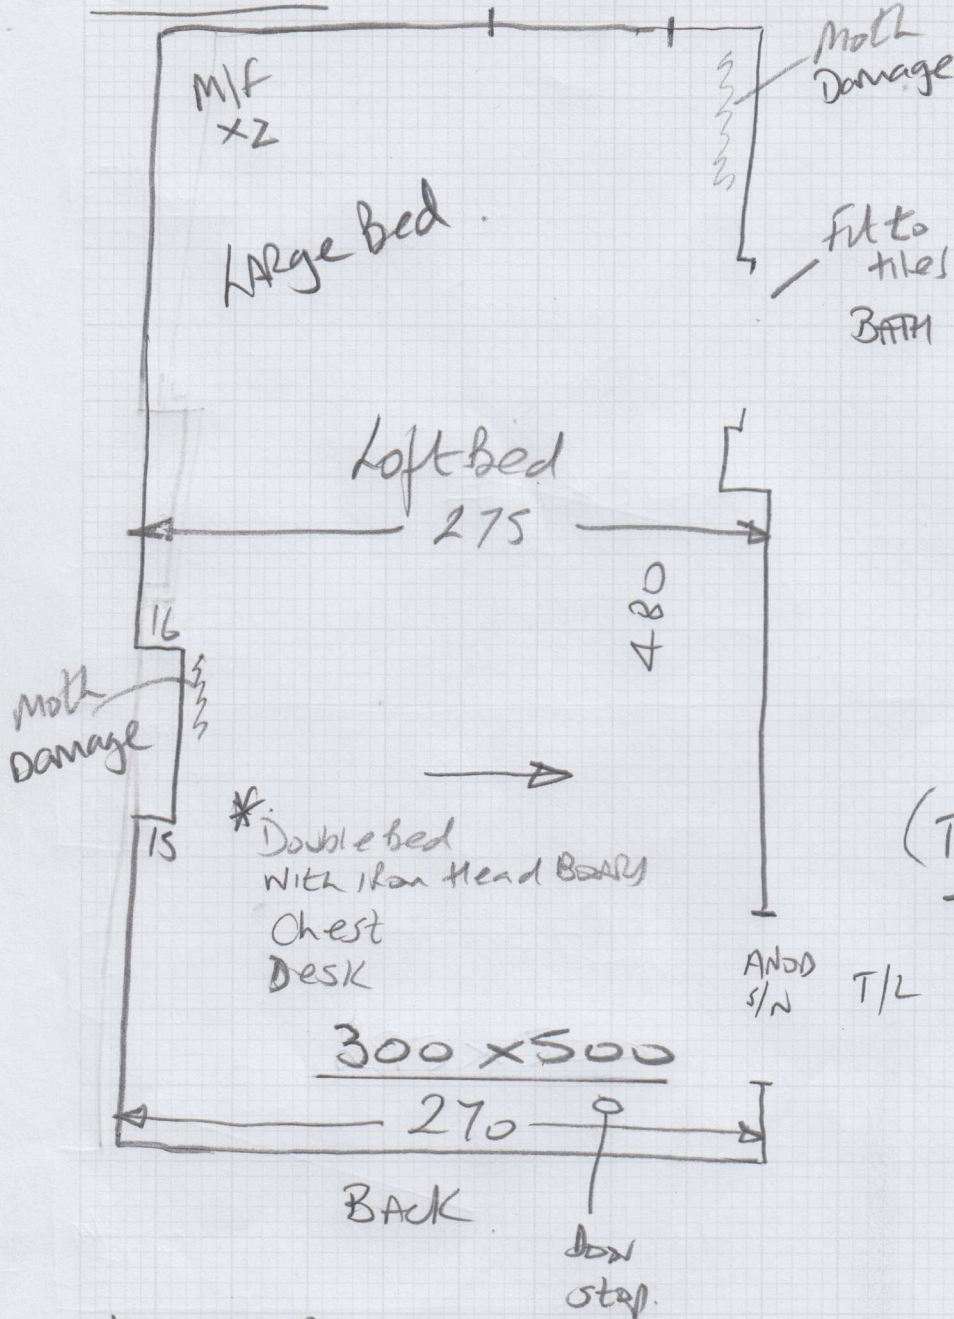 M/F
x2
Moth
Damage
LARge Bed.
Fit to
tiles
BATH
Loft Bed
275
480
16
Moth
Damage
15
*
Double bed
With iron Head BOARD
Chest
Desk
ANOD
S/N
T/L
300 x 500
270
BACK
Door
stop.